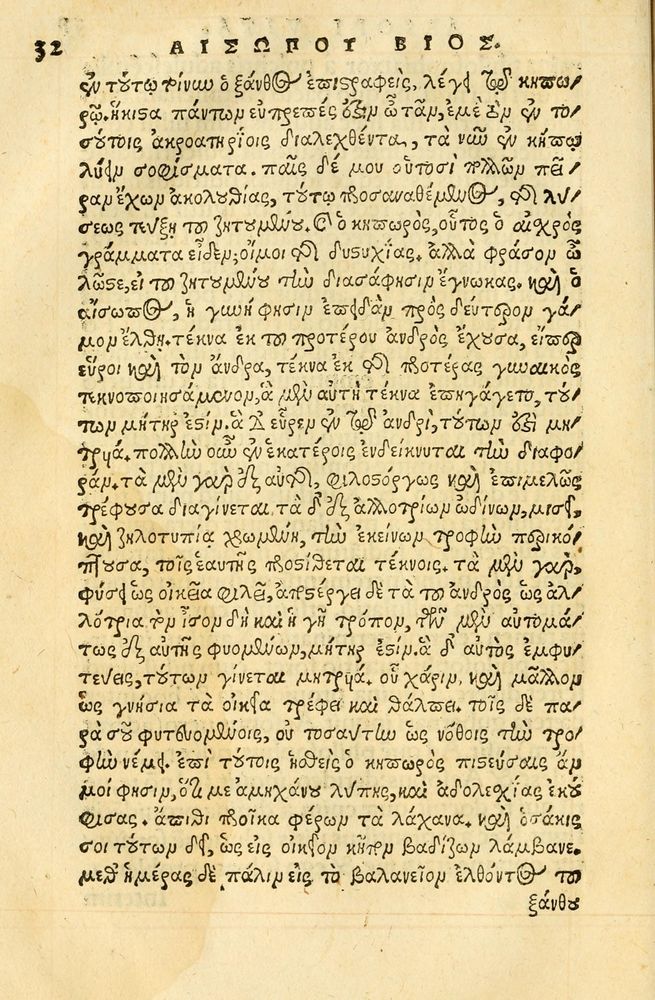 32 ΑΙΣΩΠΟΥ ΒΙΟΣ.
ἐν τούτῳ γίνου ὁ ξάνθος ἐπιστραφεὶς, λέγει τῷ κηπω/
ρῷ. ἥκιστα πάντων εὐπρεπές ἐστιν ὦ τᾶν, ἐμὲ τὸν ἐν το/
σούτοις ἀκροατηρίοις διαλεχθέντα, τὰ νῦν ἐν κήπῳ
λύειν σοφίσματα. παῖς δέ μου οὑτοσὶ πολλῶν πεῖ/
ραν ἔχων ἀκολυθίας, τούτῳ προσαναθέμενος, τῆς λύ/
σεως τεύξῃ τοῦ ζητουμένου. καὶ ὁ κηπωρὸς, οὗτος ὁ αἰσχρὸς
γράμματα εἶδεν; οἴμοι τῆς δυστυχίας. ἀλλὰ φράσον ὦ
λῶστε, εἰ τοῦ ζητουμένου τὴν διασάφησιν ἔγνωκας. καὶ ὁ
αἴσωπος, ἡ γυνή φησιν ἐπειδὰν πρὸς δεύτερον γά/
μον ἔλθῃ. τέκνα ἐκ τοῦ προτέρου ἀνδρὸς ἔχουσα, εἴπερ
εὕροι καὶ τὸν ἄνδρα, τέκνα ἐκ τῆς προτέρας γυναικὸς
τεκνοποιησάμενον, ἃ μὲν αὐτὴ τέκνα ἐπηγάγετο, τού/
των μήτηρ ἐστίν. ἃ δ' εὗρεν ἐν τῷ ἀνδρὶ, τούτων ἐστὶ μη/
τρυιά. πολλὴν οὖν ἐν ἑκατέροις ἐνδείκνυται τὴν διαφο/
ράν. τὰ μὲν γὰρ ἐξ αὐτῆς, φιλοστόργως καὶ ἐπιμελῶς
τρέφουσα διαγίνεται τὰ δ' ἐξ ἀλλοτρίων ὠδίνων, μισεῖ,
καὶ ζηλοτυπίᾳ χρωμένη, τὴν ἐκείνων τροφὴν περικό/
πτουσα, τοῖς ἑαυτῆς προστίθεται τέκνοις. τὰ μὲν γὰρ,
φύσει ὡς οἰκεῖα φιλεῖ, ἀποστέργει δὲ τὰ τοῦ ἀνδρὸς ὡς ἀλ/
λότρια τὸν ἴσον δὴ καὶ ἡ γῆ τρόπον, τῶν μὲν αὐτομά/
τως ἐξ αὐτῆς φυομένων, μήτηρ ἐστίν. ἃ δ' αὐτὸς ἐμφυ/
τεύεις, τούτων γίνεται μητρυιά. οὗ χάριν, καὶ μᾶλλον
ὡς γνήσια τὰ οἰκεῖα τρέφει καὶ θάλπει. τοῖς δὲ πα/
ρὰ σοῦ φυτευομένοις, οὐ τοσαύτην ὡς νόθοις τὴν τρο/
φὴν νέμει. ἐπὶ τούτοις ἡσθεὶς ὁ κηπωρὸς πιστεύσαις ἄν
μοί φησιν, ὅτι με ἀμηχάνου λύπης, καὶ ἀδολεχίας ἐκού/
φισας. ἄπιθι προῖκα φέρων τὰ λάχανα. καὶ ὁσάκις
σοι τούτων δεῖ, ὡς εἰς οἰκεῖον κῆπον βαδίζων λάμβανε.
μεθ' ἡμέρας δὲ πάλιν εἰς τὸ βαλανεῖον ἐλθόντος τοῦ
ξάνθου